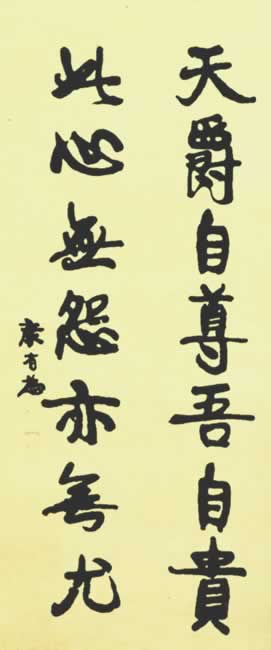 天爵自尊吾自貴
此心無怨亦無尤
康有為